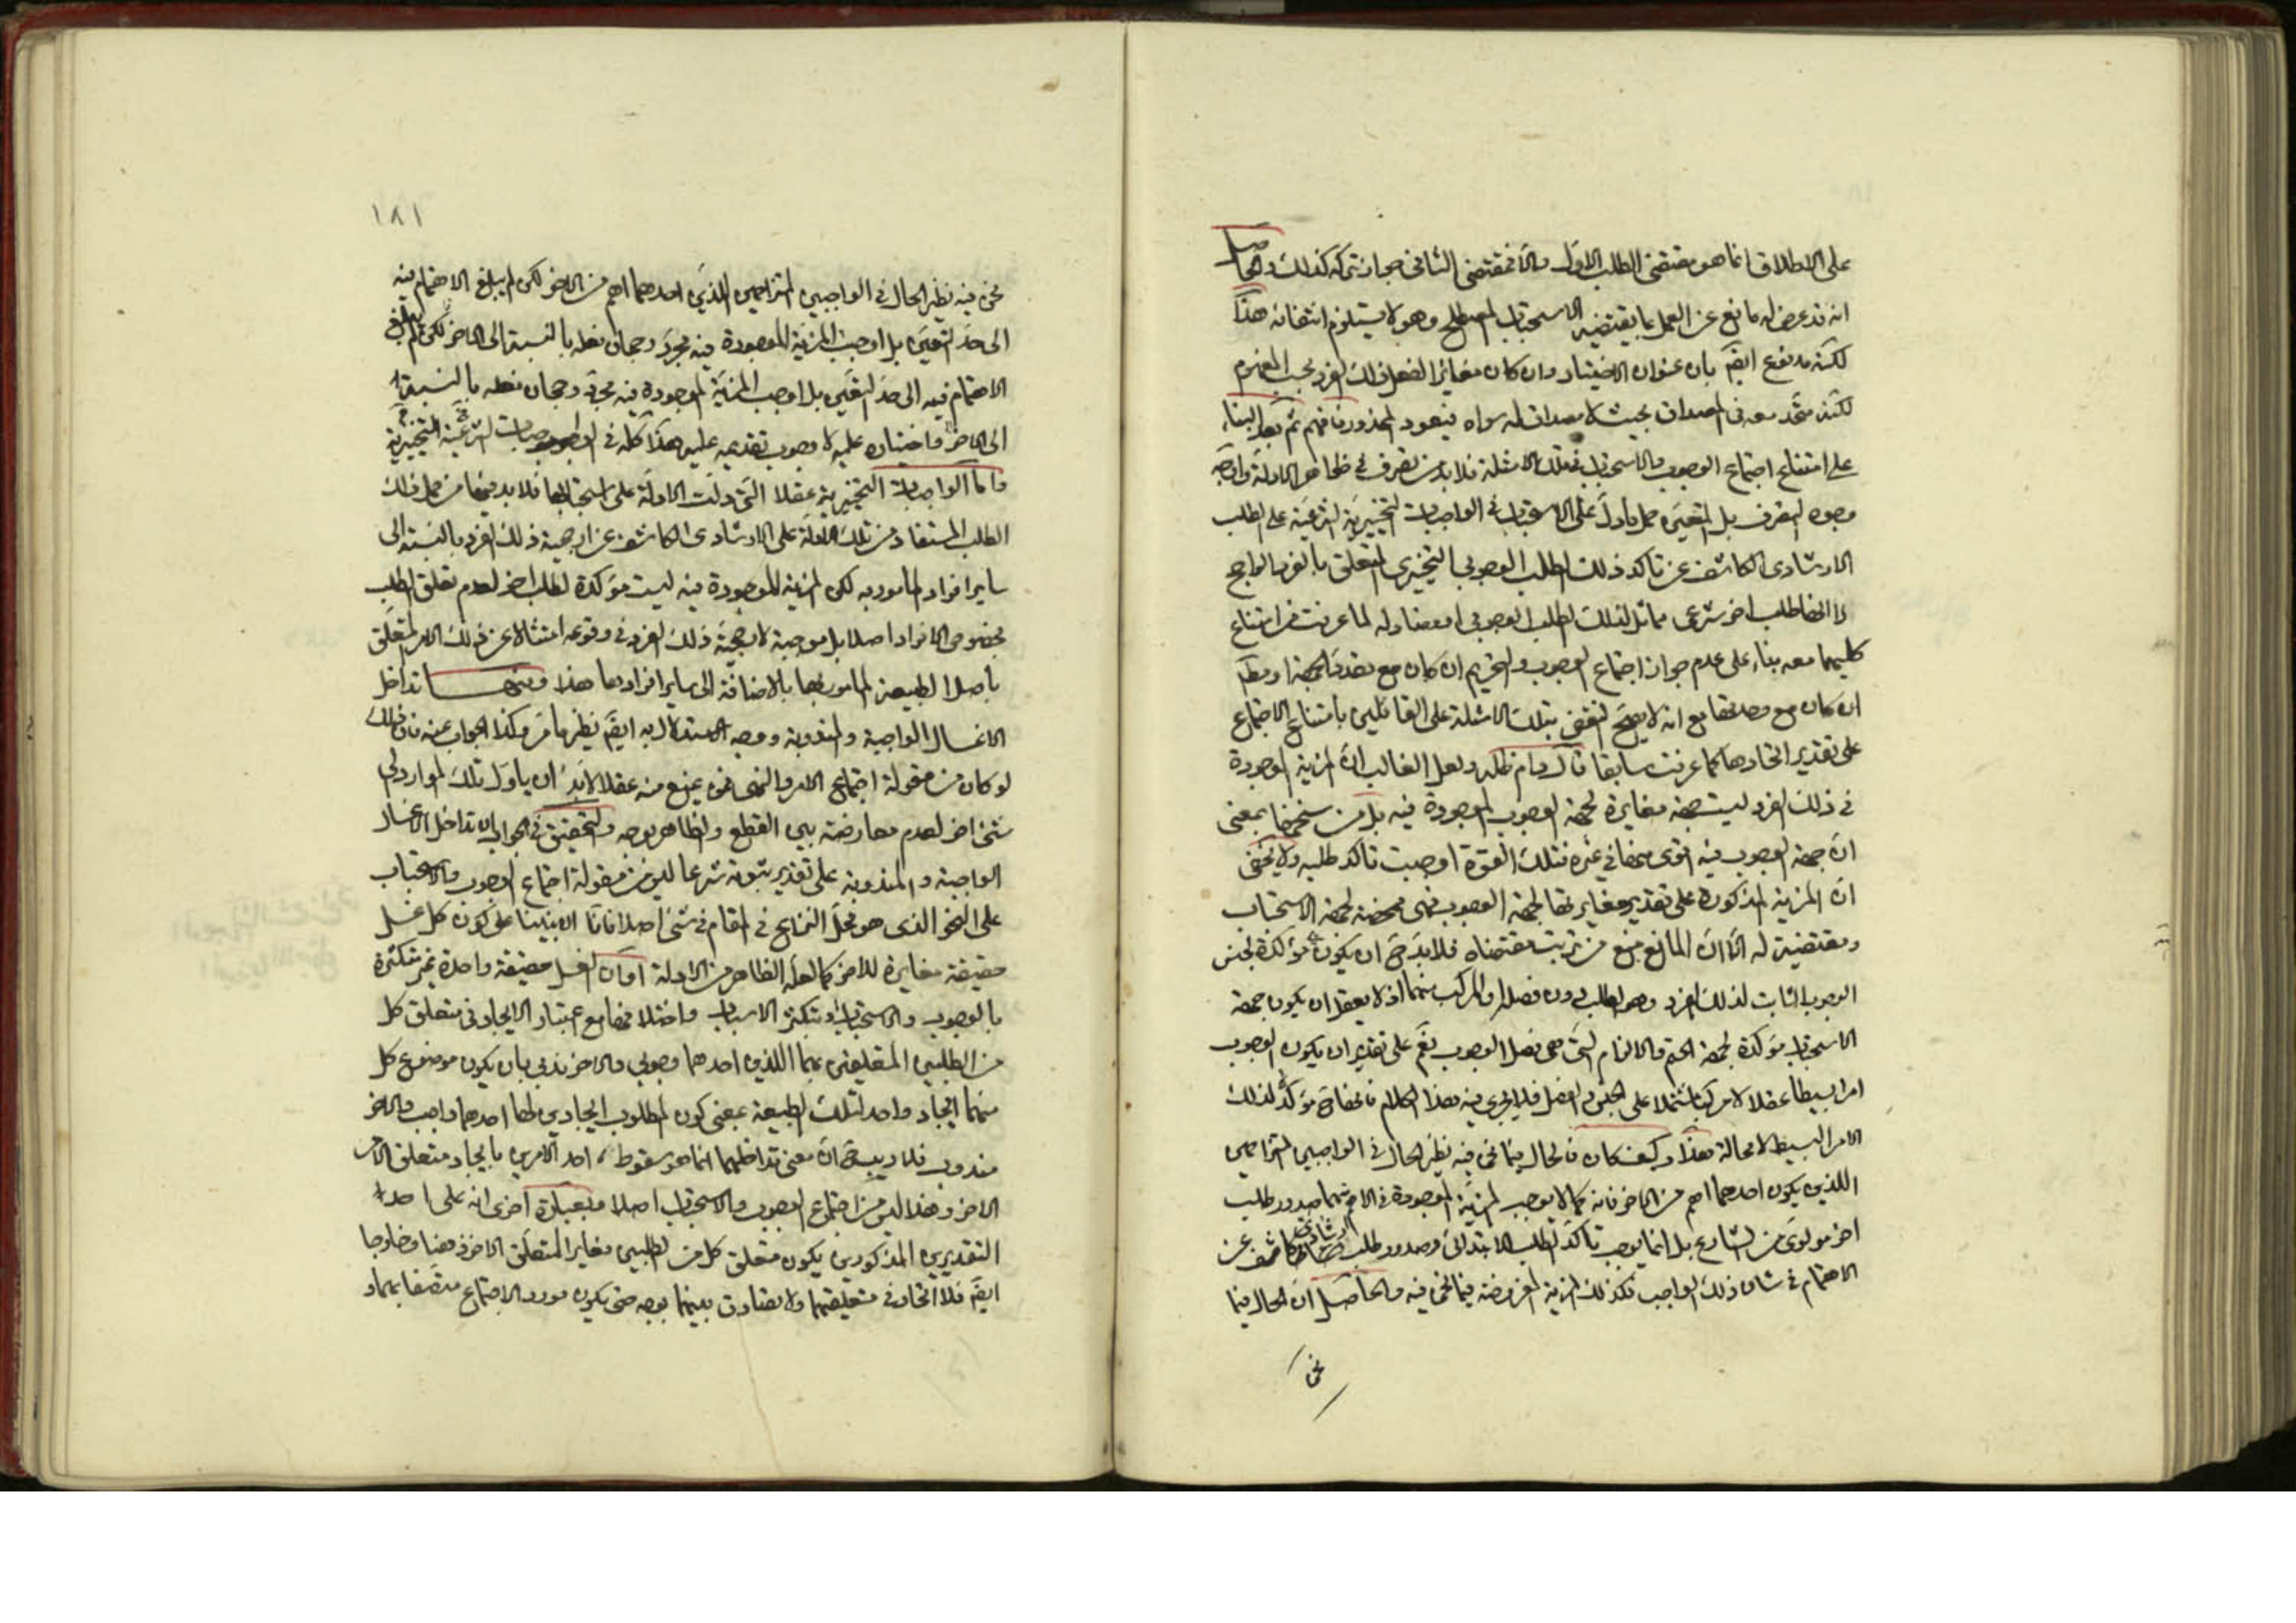 على الاطلاق انما هو مقتضى الطلب الاول والا فمقتضى الثانى جواز تركه كذلك والحاصل
انه قد عرض له مانع عن العمل بما يقتضيه الاستحباب المصطلح وهو لا يستلزم انتفائه هذا
لكنه مدفوع ايضَ بان عنوان الاختيار وان كان مغايرا لفعل ذلك الفرد بحسب المفهوم
لكنه متحد معه فى المصداق بحيث لا مصداق له سواه فيعود المحذور فافهم ثم بعد البناء
على امتناع اجتماع الوجوب والاستحباب فى تلك الامثلة فلا بد من تصرف فى ظاهر الادلة واوجه
وجوه التصرف بل المتعين حمل ما دل على الاستحباب فى الواجبات التخييرية الشرعية على الطلب
الارشادى الكاشف عن تاكد ذلك الطلب الوجوبى التخييرى المتعلق بالفرد الراجح
لا انها طلب اخر شرعى مماثل لذلك الطلب الوجوبى او مضاد له لما عرفت من امتناع
كليهما معه بناء على عدم جواز اجتماع الوجوب والتحريم ان كان مع تعدد الجهة او مطَ
ان كان مع وحدتها مع انه لا يصح النقض بتلك الامثلة على القائلين بامتناع الاجتماع
على تقدير اتحادها كما عرفت سابقا قال دام ظله ولعل الغالب ان المزية الموجودة
فى ذلك الفرد ليست جهة مغايرة لجهة الوجوب الموجودة فيه بل من سنخها بمعنى
ان جهة الوجوب فيه اقوى منها فى غيره فتلك القوة اوجبت تاكد طلبه ولا يخفى
ان المزية المذكورة على تقدير مغايرتها لجهة الوجوب فهى محضة لجهة الاستحباب
ومقتضية له الا ان المانع منع من ترتب مقتضاه فلا بد حَ ان يكون مؤكدة لجنس
الوجوب الثابت لذلك الفرد وهو الطلب دون فصله او المركب منهما اذ لا يعقل ان يكون جهة
الاستحباب مؤكدة لجهة الحتم والالزام التى هى فصل الوجوب نعَم على تقدير ان يكون الوجوب
امرا بسيطا عقلا لا مركبا مشتملا على الجنس والفصل فلا يجرى فيه هذا الكلام فانها حَ مؤكدة لذلك
الامر البسيط لا محالة هذا وكيف كان فالحال فيما نحن فيه نظير الحال فى الواجبين المتزاحمين
اللذين يكون احدهما اهم من الاخر فانه كما لا يوجب المزية الموجودة فى الاهم منهما صدور طلب
اخر مولوى من الشارع بل انما يوجب تاكد الطلب الابتدائى وصدور طلب ارشادى كاشف عن
الاهتمام فى شان ذلك الواجب فكذلك المزية المفروضة فيما نحن فيه والحاصل ان الحال فيما
نحن
١٨١
نحن فيه نظير الحال فى الواجبين المتزاحمين الذين احدهما اهم من الاخر لكن لم يبلغ الاهتمام فيه
الى حد التعين بل اوجبت المزية الموجودة فيه مجرد رجحان فعله بالنسبة الى الاخر لكن لم يبلغ
الاهتمام فيه الى حد التعين بل اوجب المزية الموجودة فيه مجرد رجحان فعله بالنسبة
الى الاخر واختياره عليه لا وجوب تقديمه عليه هذا كله فى الواجبات الشرعية التخييرية
واما الواجبات التخييرية عقلا التى دلت الادلة على استحبابها فلا بد فيها من حمل ذلك
الطلب المستفاد من تلك الادلة على الارشادى الكاشف عن ارجحية ذلك الفرد بالنسبة الى
ساير افراد المامور به لكن المزية الموجودة فيه ليست مؤكدة لطلب اخر لعدم تعلق الطلب
بخصوص الافراد اصلا بل موجبة لارجحية ذلك الفرد فى وقوعه امتثالا عن ذلك الامر المتعلق
باصل الطبيعة المامور بها بالاضافة الى ساير افرادها هذا ومنها تداخل
الاغسال الواجبة والمندوبة ووجه الاستدلال به ايضَ نظير ما مر وكذا الجواب عنه فان ذلك
لو كان من مقولة اجتماع الامر والنهى فمن يمنع منه عقلا لا بد ان ياول تلك الموارد لى
شئ اخر لعدم معارضة بين القطع والظاهر بوجه والتحقيق فى الجواب ان تداخل الاغسال
الواجبة والمندوبة على تقدير ثبوته شرعا ليس من مقولة اجتماع الوجوب والاستحباب
على النحو الذى هو محل النزاع فى المقام فى شئ اصلا فانا ان بنينا على كون كل غسل
حقيقة مغايرة للاخر كما لعله الظاهر من الادلة او ان الغسل حقيقة واحدة غير متكثرة
بالوجوب والاستحباب وتكثر الاسباب واختلافها مع اعتبار الايجاد فى متعلق كل
من الطلبين المتعلقين بهما اللذين احدهما وجوبى والاخر ندبى بان يكون موضوع كل
منهما ايجاد واحد لتلك الطبيعة بمعنى كون المطلوب ايجادين لها احدهما واجب والاخر
مندوب فلا ريب حَ ان معنى تداخلهما انما هو سقوط احد الامرين بايجاد متعلق الامر
الاخر وهذا ليس من اجتماع الوجوب والاستحباب اصلا وبعبارة اخرى انه على احد
التقديرين المذكورين يكون متعلق كل من الطلبين مغايرا لمتعلق الاخر ذهنا وخارجا
ايضَ فلا اتحاد فى متعلقهما ولا تصادق بينهما بوجه حتى يكون مورد الاجتماع متصفا بهما و